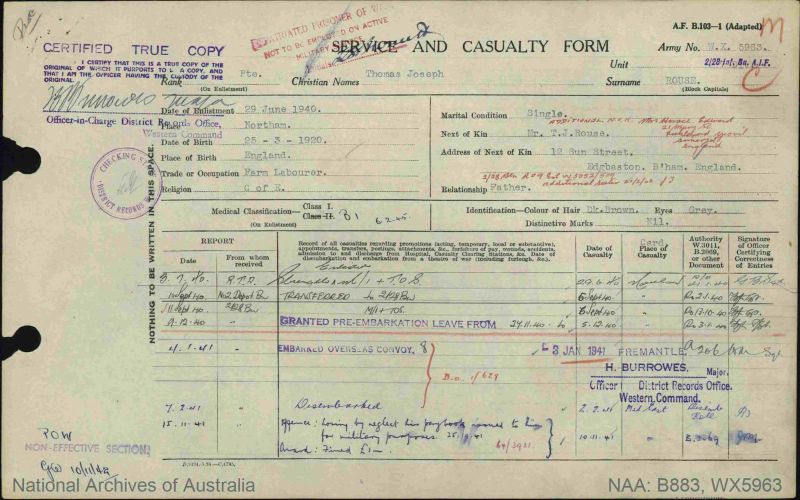 A.F. B.103—1 (Adapted)
CERTIFIED TRUE COPY
I CERTIFY THAT THIS IS A TRUE COPY OF THE
ORIGINAL OF WHICH IT PURPORTS TO BE A COPY, AND
THAT I AM THE OFFICER HAVING THE CUSTODY OF THE
ORIGINAL.
PRISONER OF W
NOT TO BE EMPLOYED ON ACTIVE
SERVICE AND CASUALTY FORM
Army No. W.X. 5963.
Unit 2/28 Inf. Bn. A.I.F.
Rank Pte. Christian Names Thomas Joseph Surname ROUSE.
(On Enlistment) (On Enlistment) (Block Capitals)
Major
Officer-in-Charge District Records Office,
Western Command
CHECKING
DISTRICT RECORDS
Date of Enlistment 29 June 1940.
Place Northam.
Date of Birth 25-3-1920.
Place of Birth England.
Trade or Occupation Farm Labourer.
Religion C of E.
Marital Condition Single.
ADDITIONAL N.O.K.
Next of Kin Mr. T.J. Rouse.
Address of Next of Kin 12 Sun Street,
Edgbaston, B'ham. England.
England
Relationship Father.
Medical Classification—Class I.
Class II. B1
(On Enlistment)
Identification—Colour of Hair Dk.Brown. Eyes Grey.
Distinctive Marks Nil.
NOTHING TO BE WRITTEN IN THIS SPACE.
REPORT
Date
From whom received
Record of all casualties regarding promotions (acting, temporary, local or substantive), appointments, transfers, postings, attachments, &c., forfeiture of pay, wounds, accidents, admission to and discharge from Hospital, Casualty Clearing Stations, &c. Date of disembarkation and embarkation from a theatre of war (including furlough, &c.).
Date of Casualty
Place of Casualty
Card.
Authority W.3011, D.2069, or other Document
Signature of Officer Certifying Correctness of Entries
3.7.40 R.T.D. Enlisted
M/I + T.O.S 29.6.40
11 Sept 40. No2 Depot Bn TRANSFERRED to 2/28 Bn 6 Sept 40
11 Sept 40. 2/28 Bn M/I + TOS. 6 Sept 40
9.12.40 " GRANTED PRE-EMBARKATION LEAVE FROM 27.11.40 to 5.12.40
4.1.41 " EMBARKED OVERSEAS CONVOY, 8 3 JAN 1941 FREMANTLE
B.O. 1/629
H. BURROWES, Major.
Officer District Records Office.
Western Command.
7.2.41 " Disembarked 2.2.41 Mid East
15.11.41 " Offence: Losing by neglect his paybook issued to him
for military purposes 25/9/41 10.11.41
Award: Fined £1
POW
NON-EFFECTIVE SECTION
National Archives of Australia
NAA: B883, WX5963